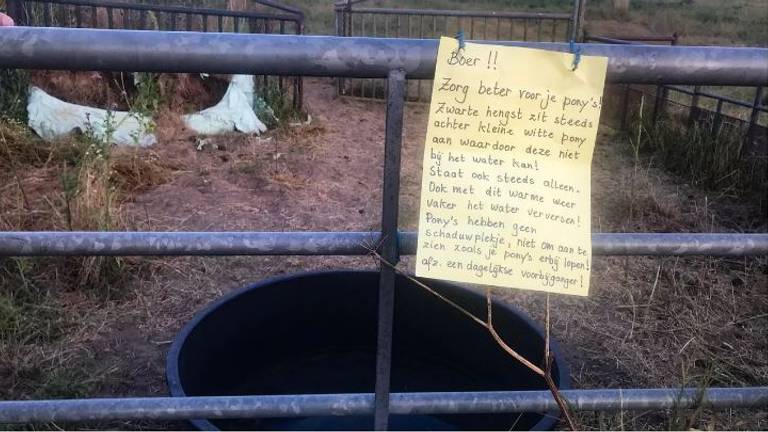 Boer !!
Zorg beter voor je pony's!
Zwarte hengst zit steeds
achter kleine witte pony
aan waardoor deze niet
bij het water kan!
Staat ook steeds alleen.
Ook met dit warme weer
vaker het water verversen!
Pony's hebben geen
schaduwplekje, niet om aan te
zien zoals je pony's erbij lopen!
afz. een dagelijkse voorbijganger!